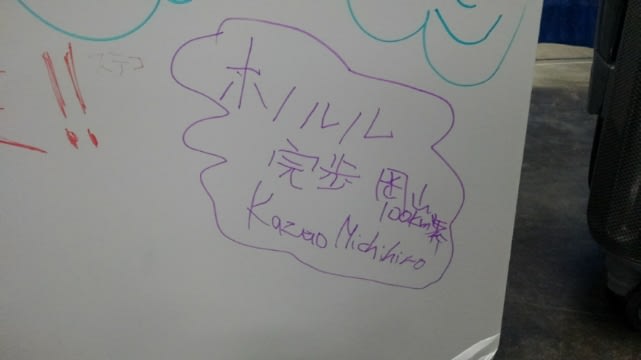 !!
ホノルル
完歩 岡山
100km
Kazuo Michihiro